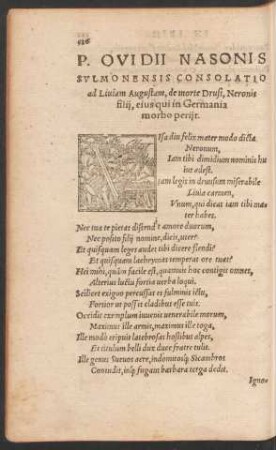 P. OVIDII NASONIS
SVLMONENSIS CONSOLATIO
ad Liuiam Augustam, de morte Drusi, Neronis
filij, eius qui in Germania
morbo perijt.
Isa diu felix mater modo dicta
Neronum,
Iam tibi dimidium nominis hu
ius adest.
Iam legis in Drusum miserabile
Liuia carmen,
Vnum, qui dicat iam tibi mater
habes.
Nec tua te pietas distendit amore duorum,
Nec posito filij nomine, dicis, uter?
Et quisquam leges audet tibi dicere flendi?
Et quisquam lachrymas temperat ore tuas?
Hei mihi, quàm facile est, quamuis hoc contigit omnes,
Alterius luctu fortia uerba loqui.
Scilicet exiguo percussa es fulminis ictu,
Fortior ut possis cladibus esse tuis.
Occidit exemplum iuuenis uenerabile morum,
Maximus ille armis, maximus ille toga,
Ille modò eripuit latebrosas hostibus alpes,
Et titulum belli dux duce fratre tulit.
Ille genus Sueuos acre, indomitosq; Sicambros
Contudit, inq; fugam barbara terga dedit.
Ignoe